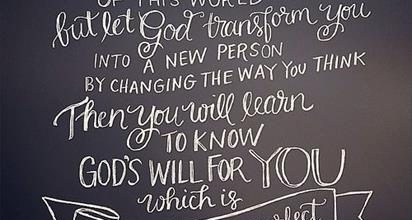 OF THIS WORLD
but let God transform you
INTO A NEW PERSON
BY CHANGING THE WAY YOU THINK
Then you will learn
TO KNOW
GOD'S WILL FOR YOU
which is